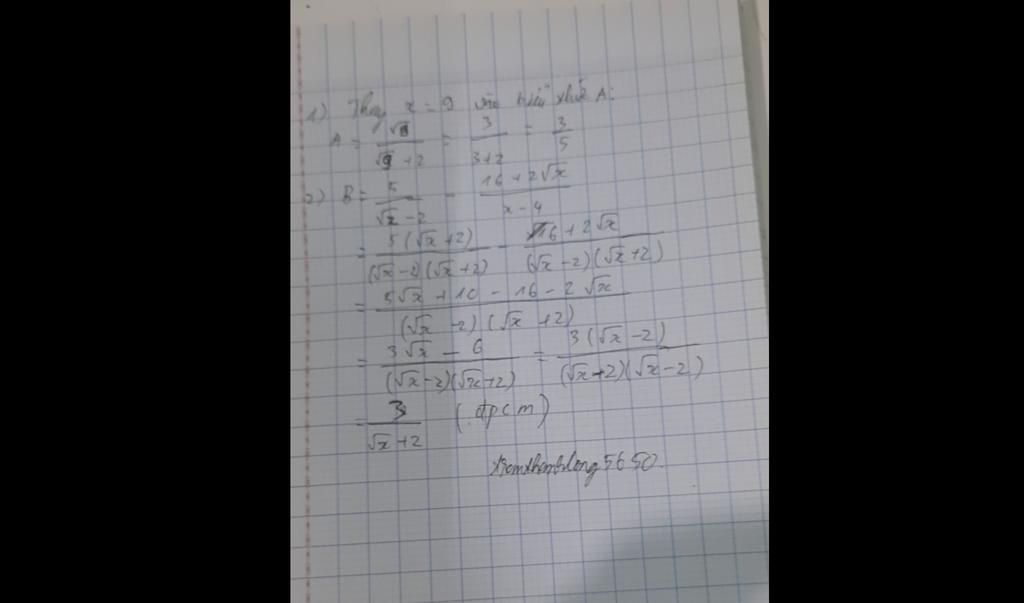 1) Thay x = 9 vào biểu thức A:
A = √9 / (√9 + 2) = 3 / (3+2) = 3/5
2) B = 5 / (√x - 2) - (16 + 2√x) / (x - 4)
= 5(√x + 2) / ((√x - 2)(√x + 2)) - (16 + 2√x) / ((√x - 2)(√x + 2))
= (5√x + 10 - 16 - 2√x) / ((√x - 2)(√x + 2))
= (3√x - 6) / ((√x - 2)(√x + 2)) = 3(√x - 2) / ((√x + 2)(√x - 2))
= 3 / (√x + 2) (đpcm)